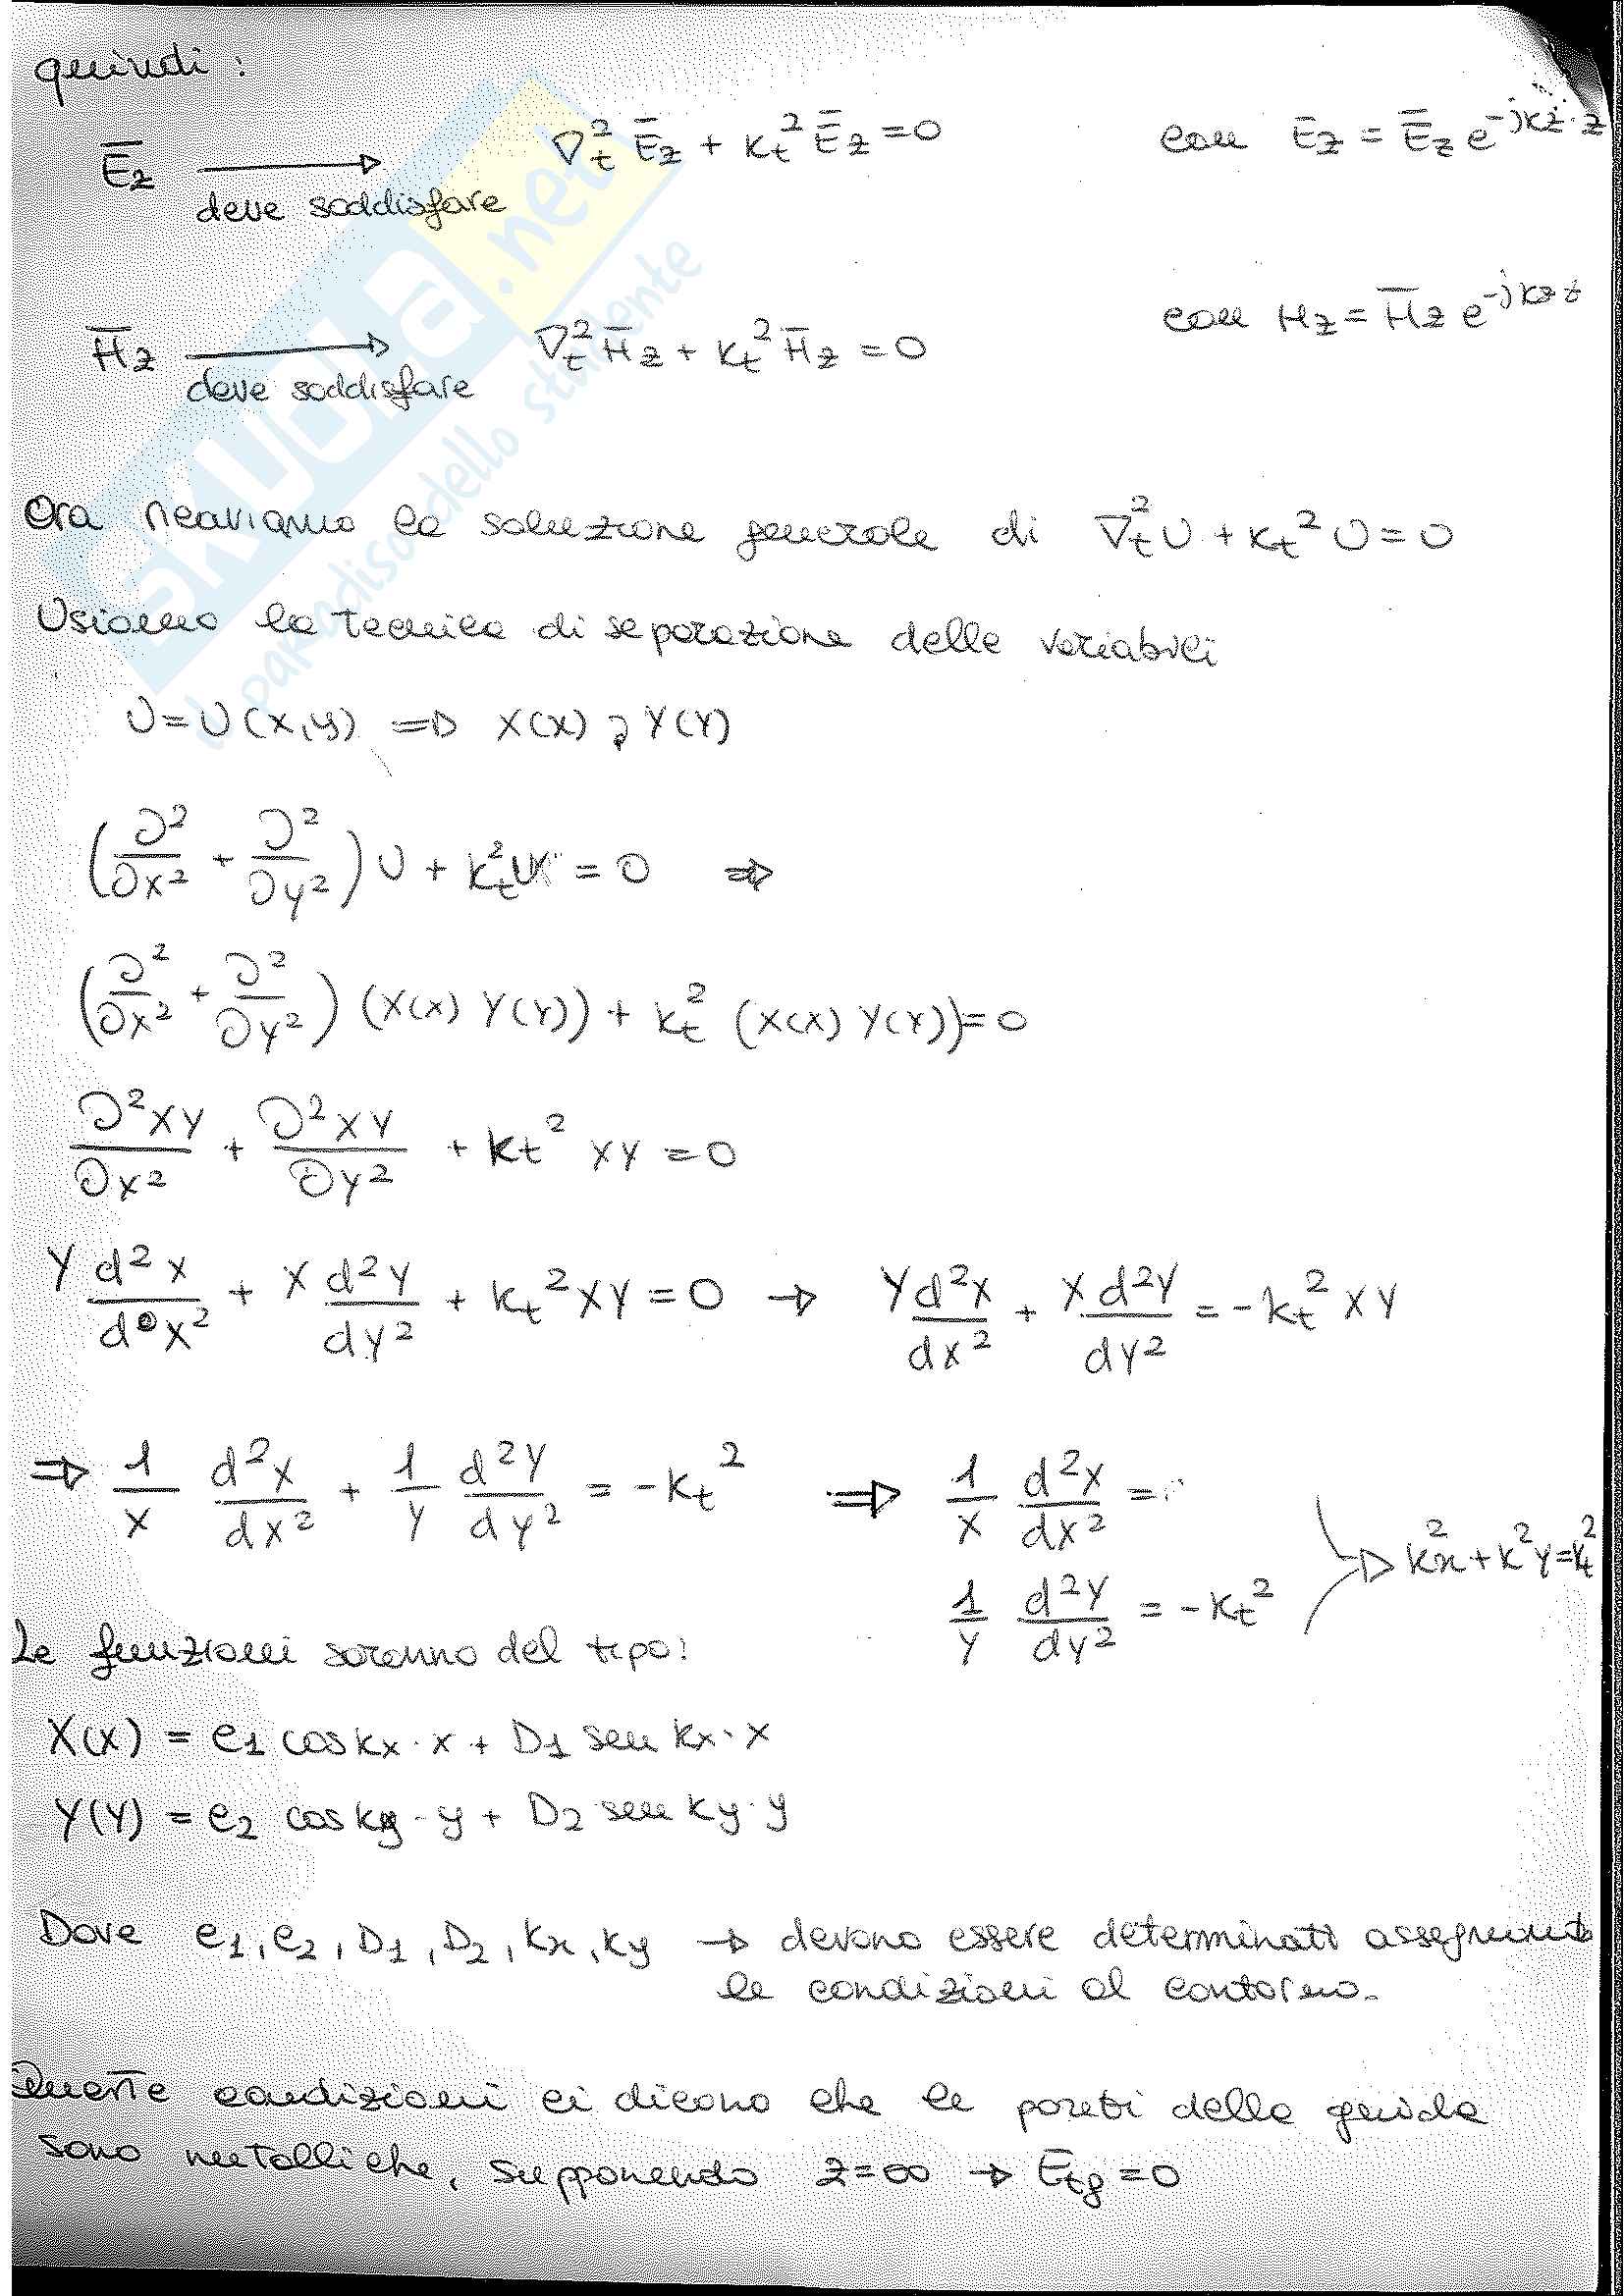 quindi:
Ēz → ∇t² Ēz + kt² Ēz = 0 con Ez = Ēz e^-jkz·z
deve soddisfare
H̄z → ∇t² H̄z + kt² H̄z = 0 con Hz = H̄z e^-jkz z
deve soddisfare
Ora ricaviamo la soluzione generale di ∇t² U + kt² U = 0
Usiamo la tecnica di separazione delle variabili
U = U(x,y) ⇒ X(x) ; Y(Y)
(∂²/∂x² + ∂²/∂y²) U + kt² U = 0 ⇒
(∂²/∂x² + ∂²/∂y²) (X(x) Y(Y)) + kt² (X(x) Y(Y)) = 0
∂²XY/∂x² + ∂²XY/∂y² + kt² XY = 0
Y d²X/dx² + X d²Y/dy² + kt² XY = 0 → Y d²X/dx² + X d²Y/dy² = -kt² XY
⇒ 1/X d²X/dx² + 1/Y d²Y/dy² = -kt² ⇒ 1/X d²X/dx² =
1/Y d²Y/dy² = -kt² ⇒ kx² + k²y = kt²
Le funzioni saranno del tipo:
X(x) = c1 cos kx·x + D1 sen kx·x
Y(Y) = c2 cos ky·y + D2 sen ky·y
Dove c1, c2, D1, D2, kx, ky → devono essere determinati assegnando
le condizioni al contorno.
Queste condizioni ci dicono che le pareti della guida
sono metalliche, supponendo z=∞ → Ētg = 0
SKUOLA.net
il paradiso dello studente